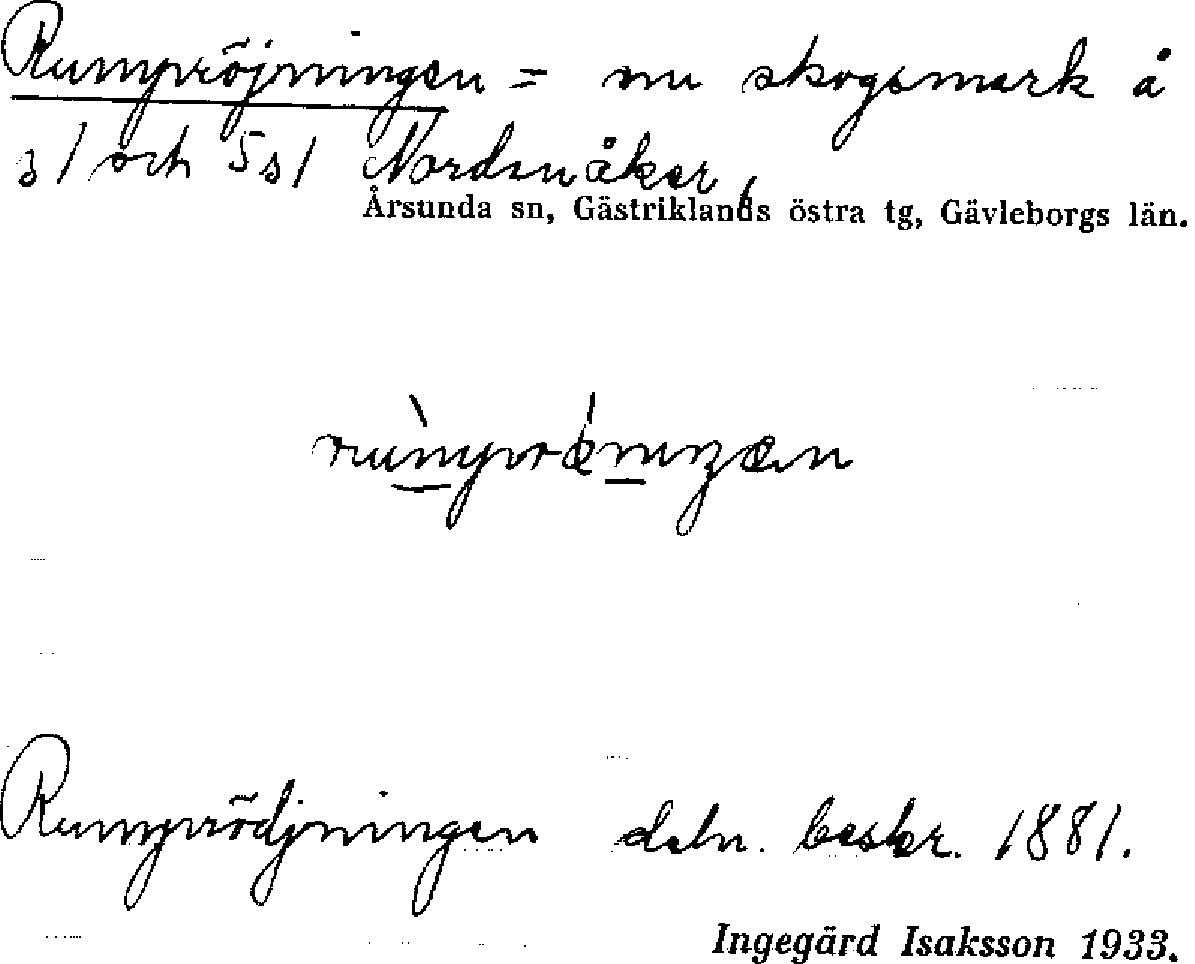 Rumpröjningen = nu skogsmark å
31 och 531 Nordanåker,
Årsunda sn, Gästriklands östra tg, Gävleborgs län.
Rumprödjningen deln. beskr. 1881.
Ingegärd Isaksson 1933.